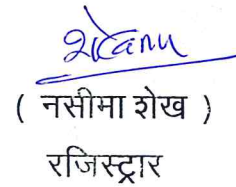 ( नसीमा शेख )
रजिस्ट्रार